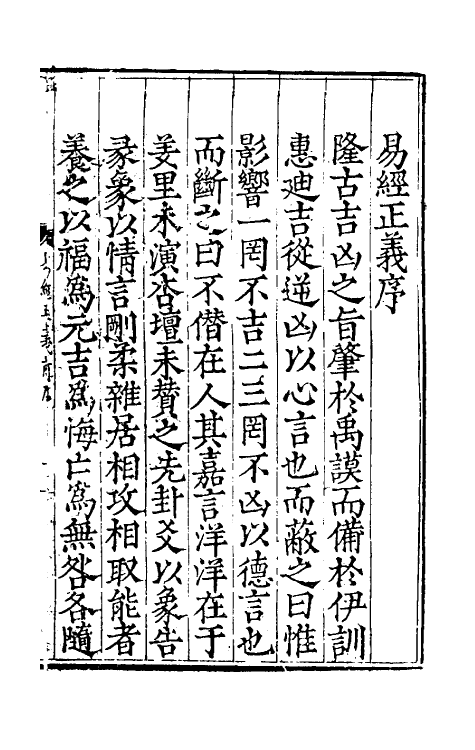 易經正義序
隆古吉凶之旨肇於禹謨而備於伊訓
惠迪吉從逆凶以心言也而蔽之曰惟
影響一罔不吉二三罔不凶以德言也
而斷之曰不僭在人其嘉言洋洋在于
羑里未演杏壇未贊之先卦爻以象告
彖象以情言剛柔雜居相攻相取能者
養之以福為元吉為悔亡為無咎各隨